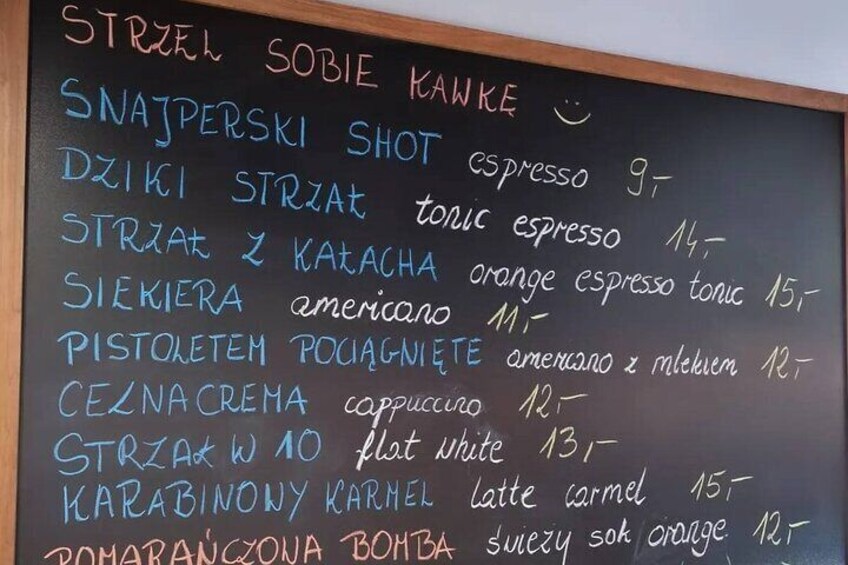 STRZEL SOBIE KAWKĘ
SNAJPERSKI SHOT espresso 9,-
DZIKI STRZAŁ tonic espresso 14,-
STRZAŁ Z KAŁACHA orange espresso tonic 15,-
SIEKIERA americano 11,-
PISTOLETEM POCIĄGNIĘTE americano z mlekiem 12,-
CELNA CREMA cappuccino 12,-
STRZAŁ W 10 flat white 13,-
KARABINOWY KARMEL latte carmel 15,-
POMARAŃCZOWA BOMBA świeży sok orange 12,-